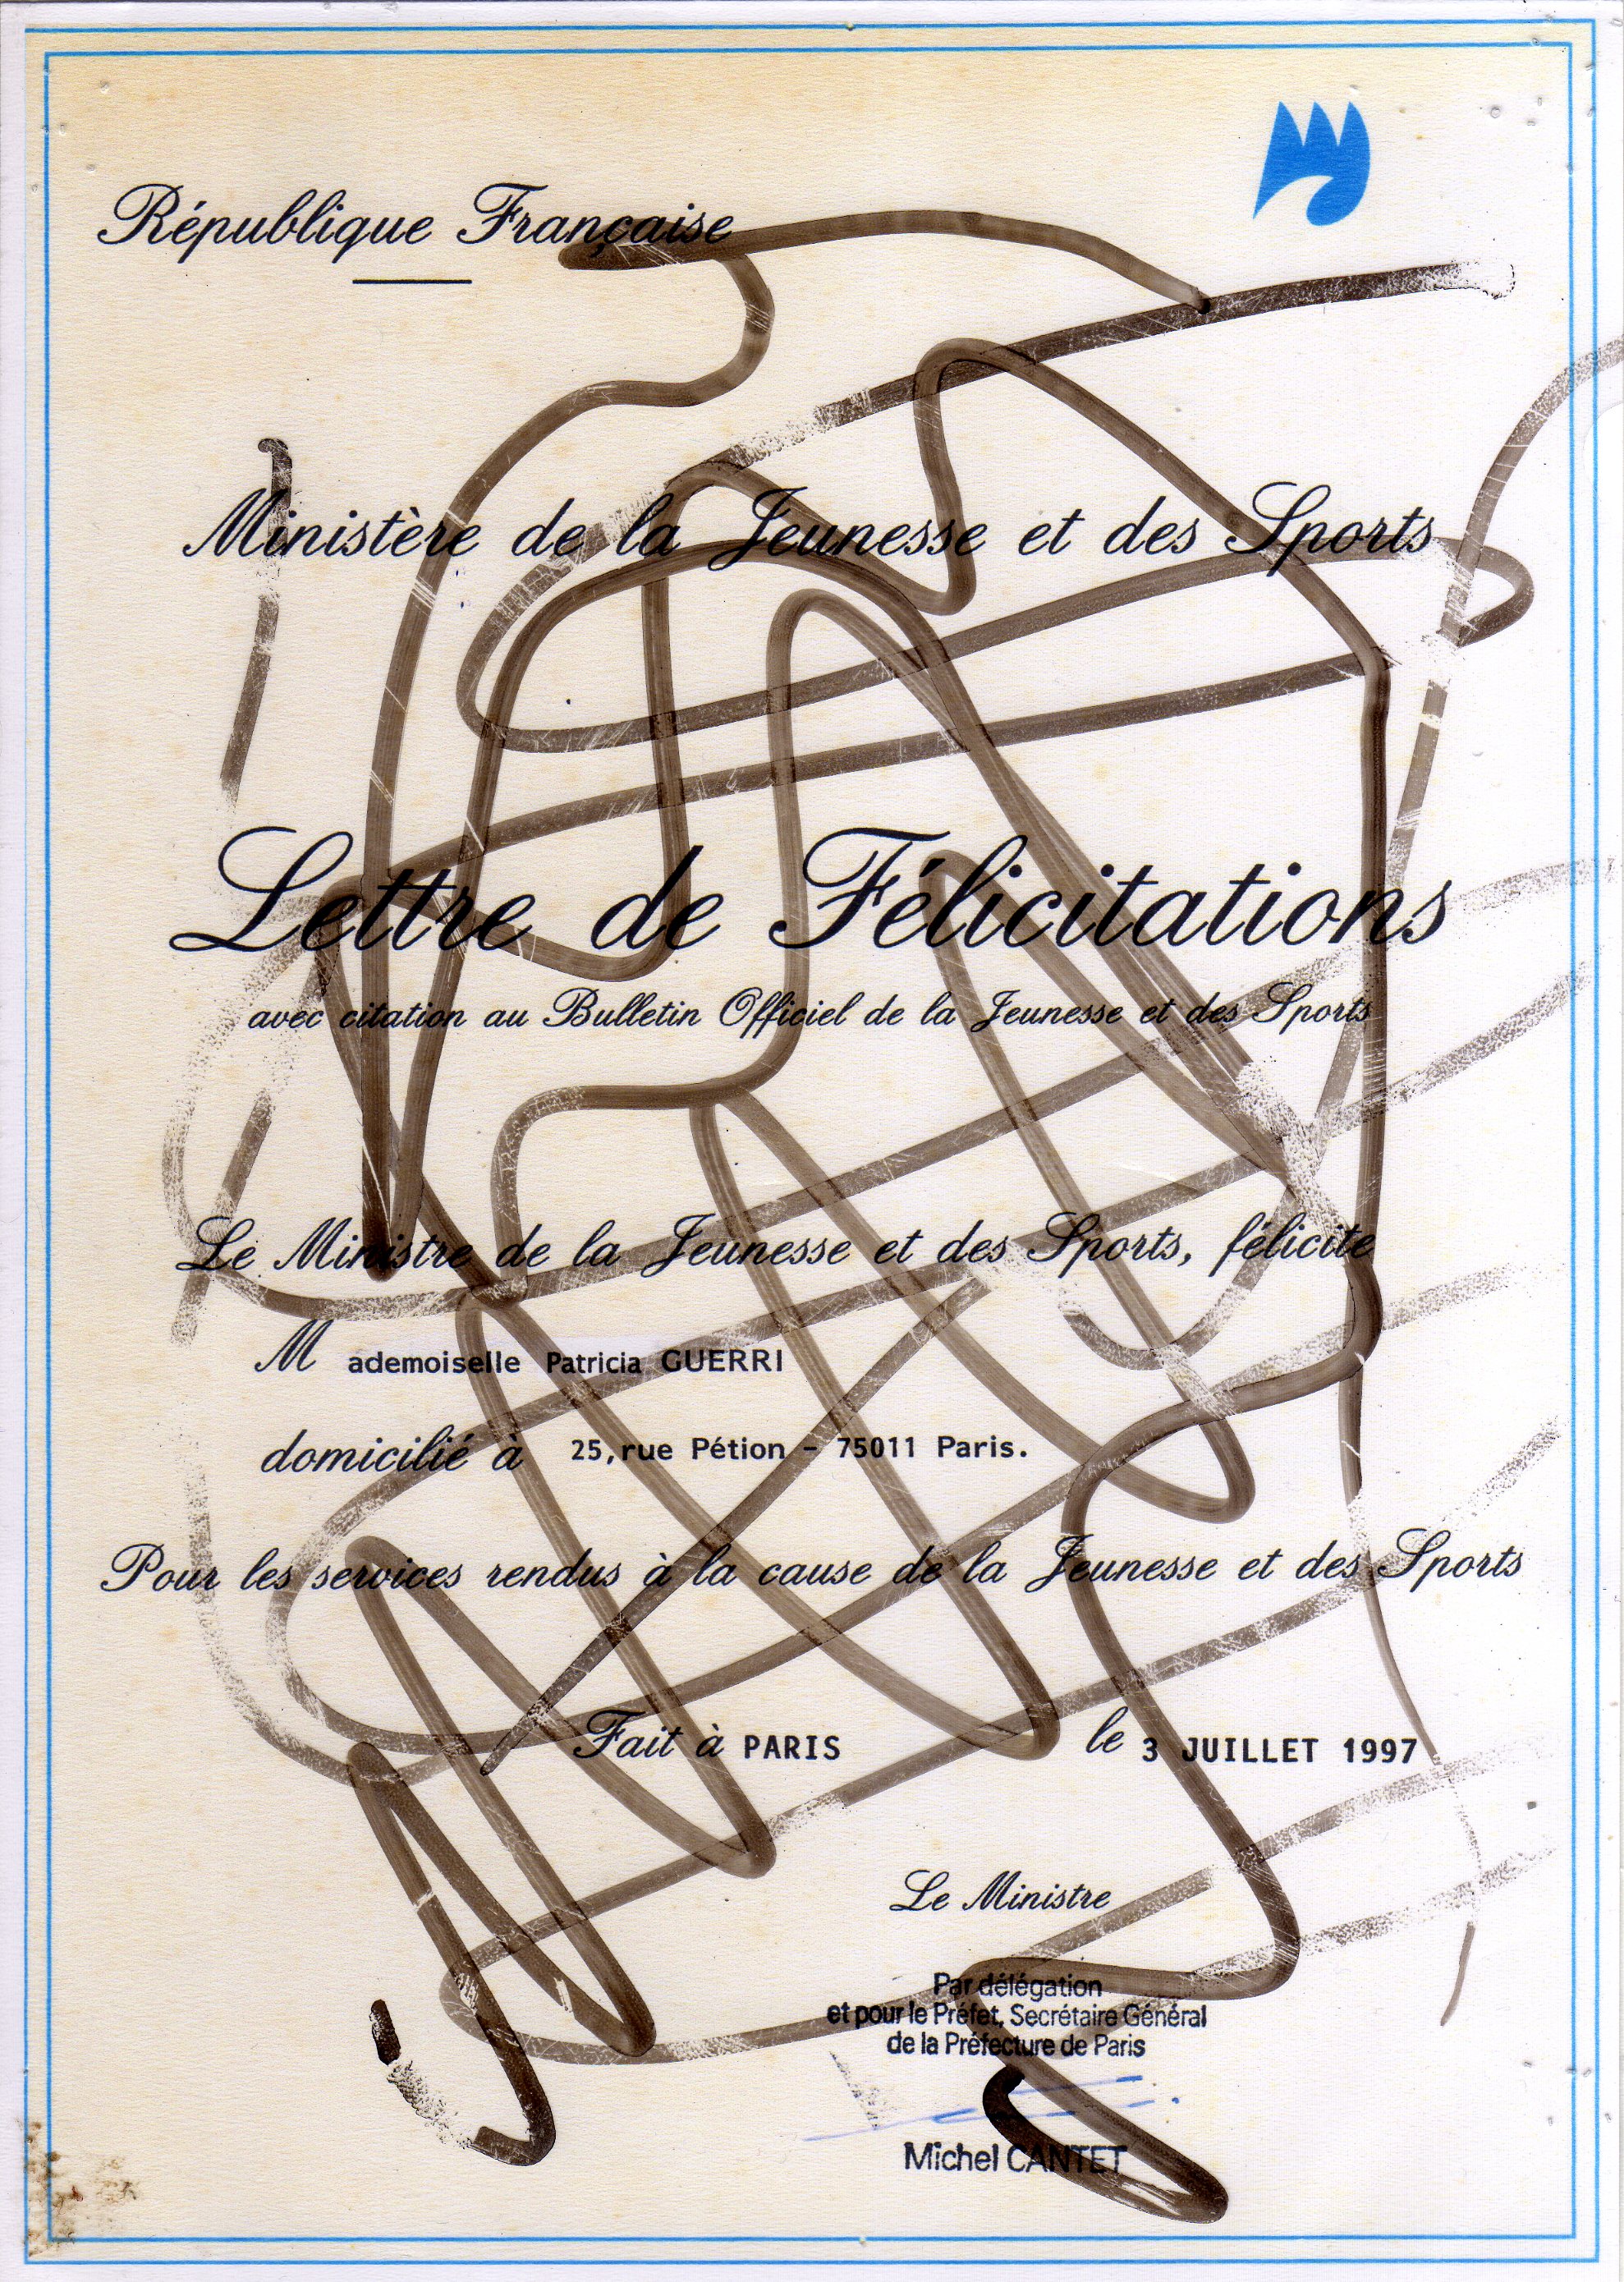 République Française
Ministère de la Jeunesse et des Sports
Lettre de Félicitations
avec citation au Bulletin Officiel de la Jeunesse et des Sports
Le Ministre de la Jeunesse et des Sports, félicite
M ademoiselle Patricia GUERRI
domicilié à 25,rue Pétion - 75011 Paris.
Pour les services rendus à la cause de la Jeunesse et des Sports
Fait à PARIS le 3 JUILLET 1997
Le Ministre
Par délégation
et pour le Préfet, Secrétaire Général
de la Préfecture de Paris
Michel CANTET